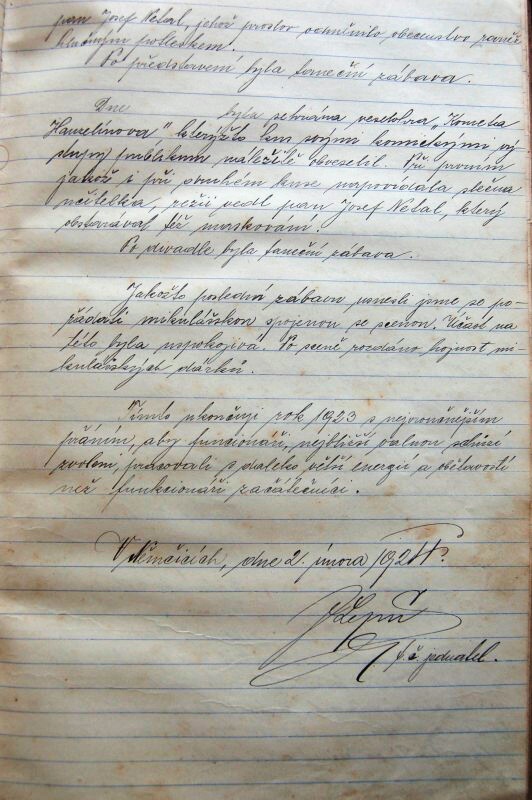 pan Josef Netal, jehož proslov odměnilo obecenstvo
hlučným potleskem.
Po představení byla taneční zábava.
Dne byla sehrána veselohra „Kometa
Hamelínova" kterýžto kus svými komickými vý-
stupy publikum náležitě obveselil. Při prvním
jakož i při druhém kuse napovídala slečna
učitelka, režii vedl pan Josef Netal, který
obstarával též maskování.
Po divadle byla taneční zábava.
Jakožto poslední zábavu usnesli jsme se po-
řádati mikulášskou spojenou se scenou. Účast na
této byla uspokojivá. Po sceně rozdáno hojnost mi-
kulášských dárků.
Tímto ukončuji rok 1923 s nejvroucnějším
přáním, aby funcionáři, nejbližší valnou schůzí
zvoleni, pracovali s daleko větší energií a obětavostí
než funkcionáři začátečníci.
V Němčicích, dne 2. února 1924.
t. č. jednatel.